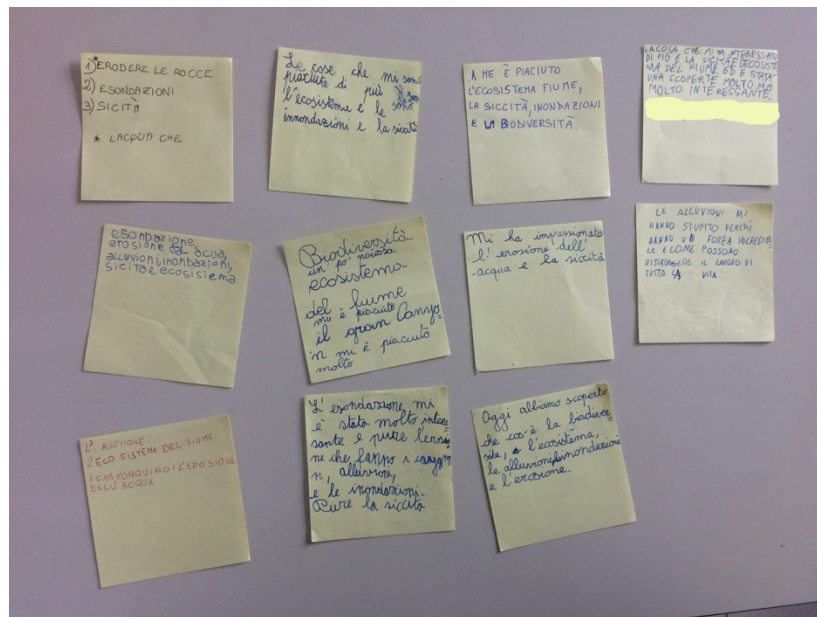 1) *ERODERE LE ROCCE
2) ESONDAZIONI
3) SICITÀ
* LACQUA CHE
Le cose che mi sono
piaciute di più sono
l'ecosistema e le
innondazioni e la siccità
A ME È PIACIUTO
L'ECOSISTEMA FIUME,
LA SICCITÀ, INONDAZIONI
E LA BIODIVERSITÀ.
LA COSA CHE MI HA INTERESSATO
DI PIÙ È LA SICITÀ E L'ECOSISTE
MA DEL FIUME ED È STATA
UNA SCOPERTE MOLTO MA
MOLTO INTERESSANTE.
esondazione,
erosione acqua,
alluvioni, inontazioni,
sicità e ecosistema
Biodiversità
un po' noiosa
ecosistema
del fiume
mi è piaciuto
il gran Canyo=
n mi è piaciuto
molto
Mi ha impressionato
l'erosione dell'
acqua e la siccità
LE ALLUVIONI MI
HANNO STUPITO PERCHÈ
ANNO UNA FORZA INCREDIBI
LE E COME POSSONO
DISTRUGGERE IL LAVORO DI
TUTTA LA VITA
L'ALLUVIONE
L'ECO SISTEMA DEL FIUME
I CANYON QUINDI L'EROSIONE
DELL'ACQUA
L'esondazione mi
è stata molto interes
sante e pure l'erosio
ne che fanno i canyo=
n, alluvioni,
e le inondazioni.
Pure la siccità
Oggi abbiamo scoperto
che cos'è la biodiver
sità, l'ecosistema,
le alluvioni, inondazioni
e l'erosione.